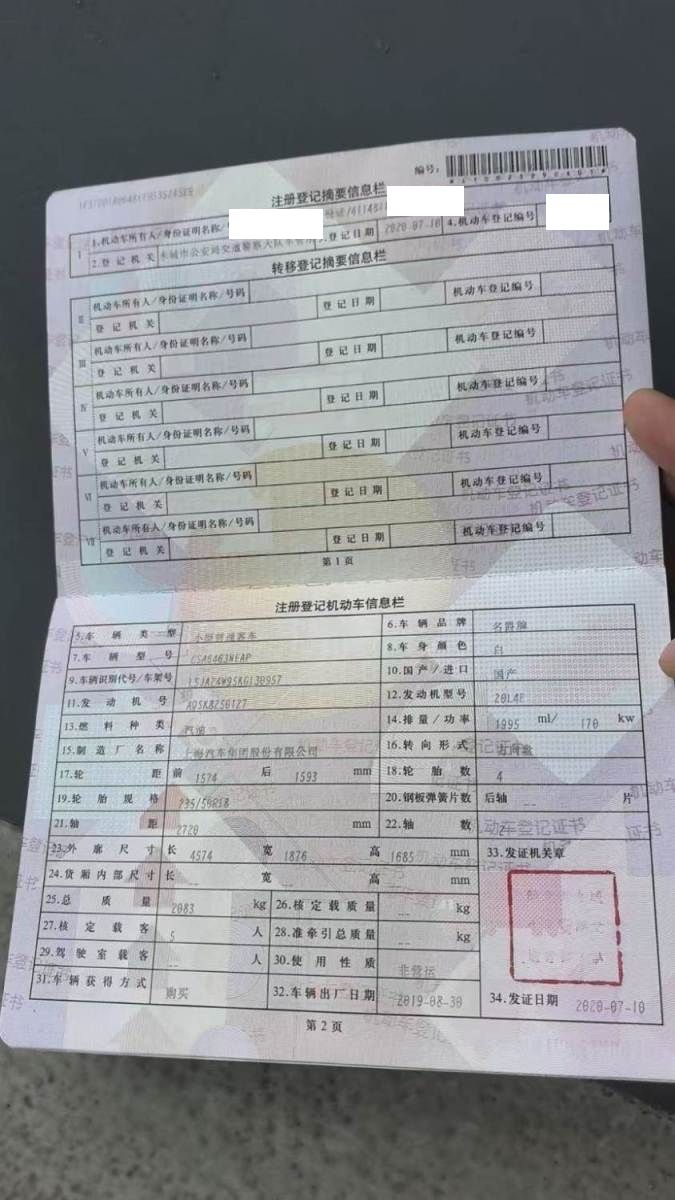 编号：
注册登记摘要信息栏
Ⅰ 1.机动车所有人/身份证明名称/
2.登记机关 3.登记日期 2020-07-10 4.机动车登记编号
转移登记摘要信息栏
Ⅱ 机动车所有人/身份证明名称/号码
登记机关 登记日期 机动车登记编号
Ⅲ 机动车所有人/身份证明名称/号码
登记机关 登记日期 机动车登记编号
Ⅳ 机动车所有人/身份证明名称/号码
登记机关 登记日期 机动车登记编号
Ⅴ 机动车所有人/身份证明名称/号码
登记机关 登记日期 机动车登记编号
Ⅵ 机动车所有人/身份证明名称/号码
登记机关 登记日期 机动车登记编号
Ⅶ 机动车所有人/身份证明名称/号码
登记机关 登记日期 机动车登记编号
第1页
注册登记机动车信息栏
5.车辆类型 小型普通客车 6.车辆品牌 名爵牌
7.车辆型号 CSA6463NEAP 8.车身颜色 白
9.车辆识别代号/车架号 10.国产/进口 国产
11.发动机号 12.发动机型号 20L4E
13.燃料种类 汽油 14.排量/功率 1995 ml/ 170 kw
15.制造厂名称 上海汽车集团股份有限公司 16.转向形式 方向盘
17.轮距 前 1574 后 1593 mm 18.轮胎数 4
19.轮胎规格 235/50R18 20.钢板弹簧片数 后轴 -- 片
21.轴距 2720 mm 22.轴数 2
23.外廓尺寸 长 4574 宽 1876 高 1685 mm 33.发证机关章
24.货厢内部尺寸 长 -- 宽 -- 高 -- mm
25.总质量 2083 kg 26.核定载质量 -- kg
27.核定载客 5 人 28.准牵引总质量 -- kg
29.驾驶室载客 -- 人 30.使用性质 非营运
31.车辆获得方式 购买 32.车辆出厂日期 2019-08-30 34.发证日期 2020-07-10
第2页